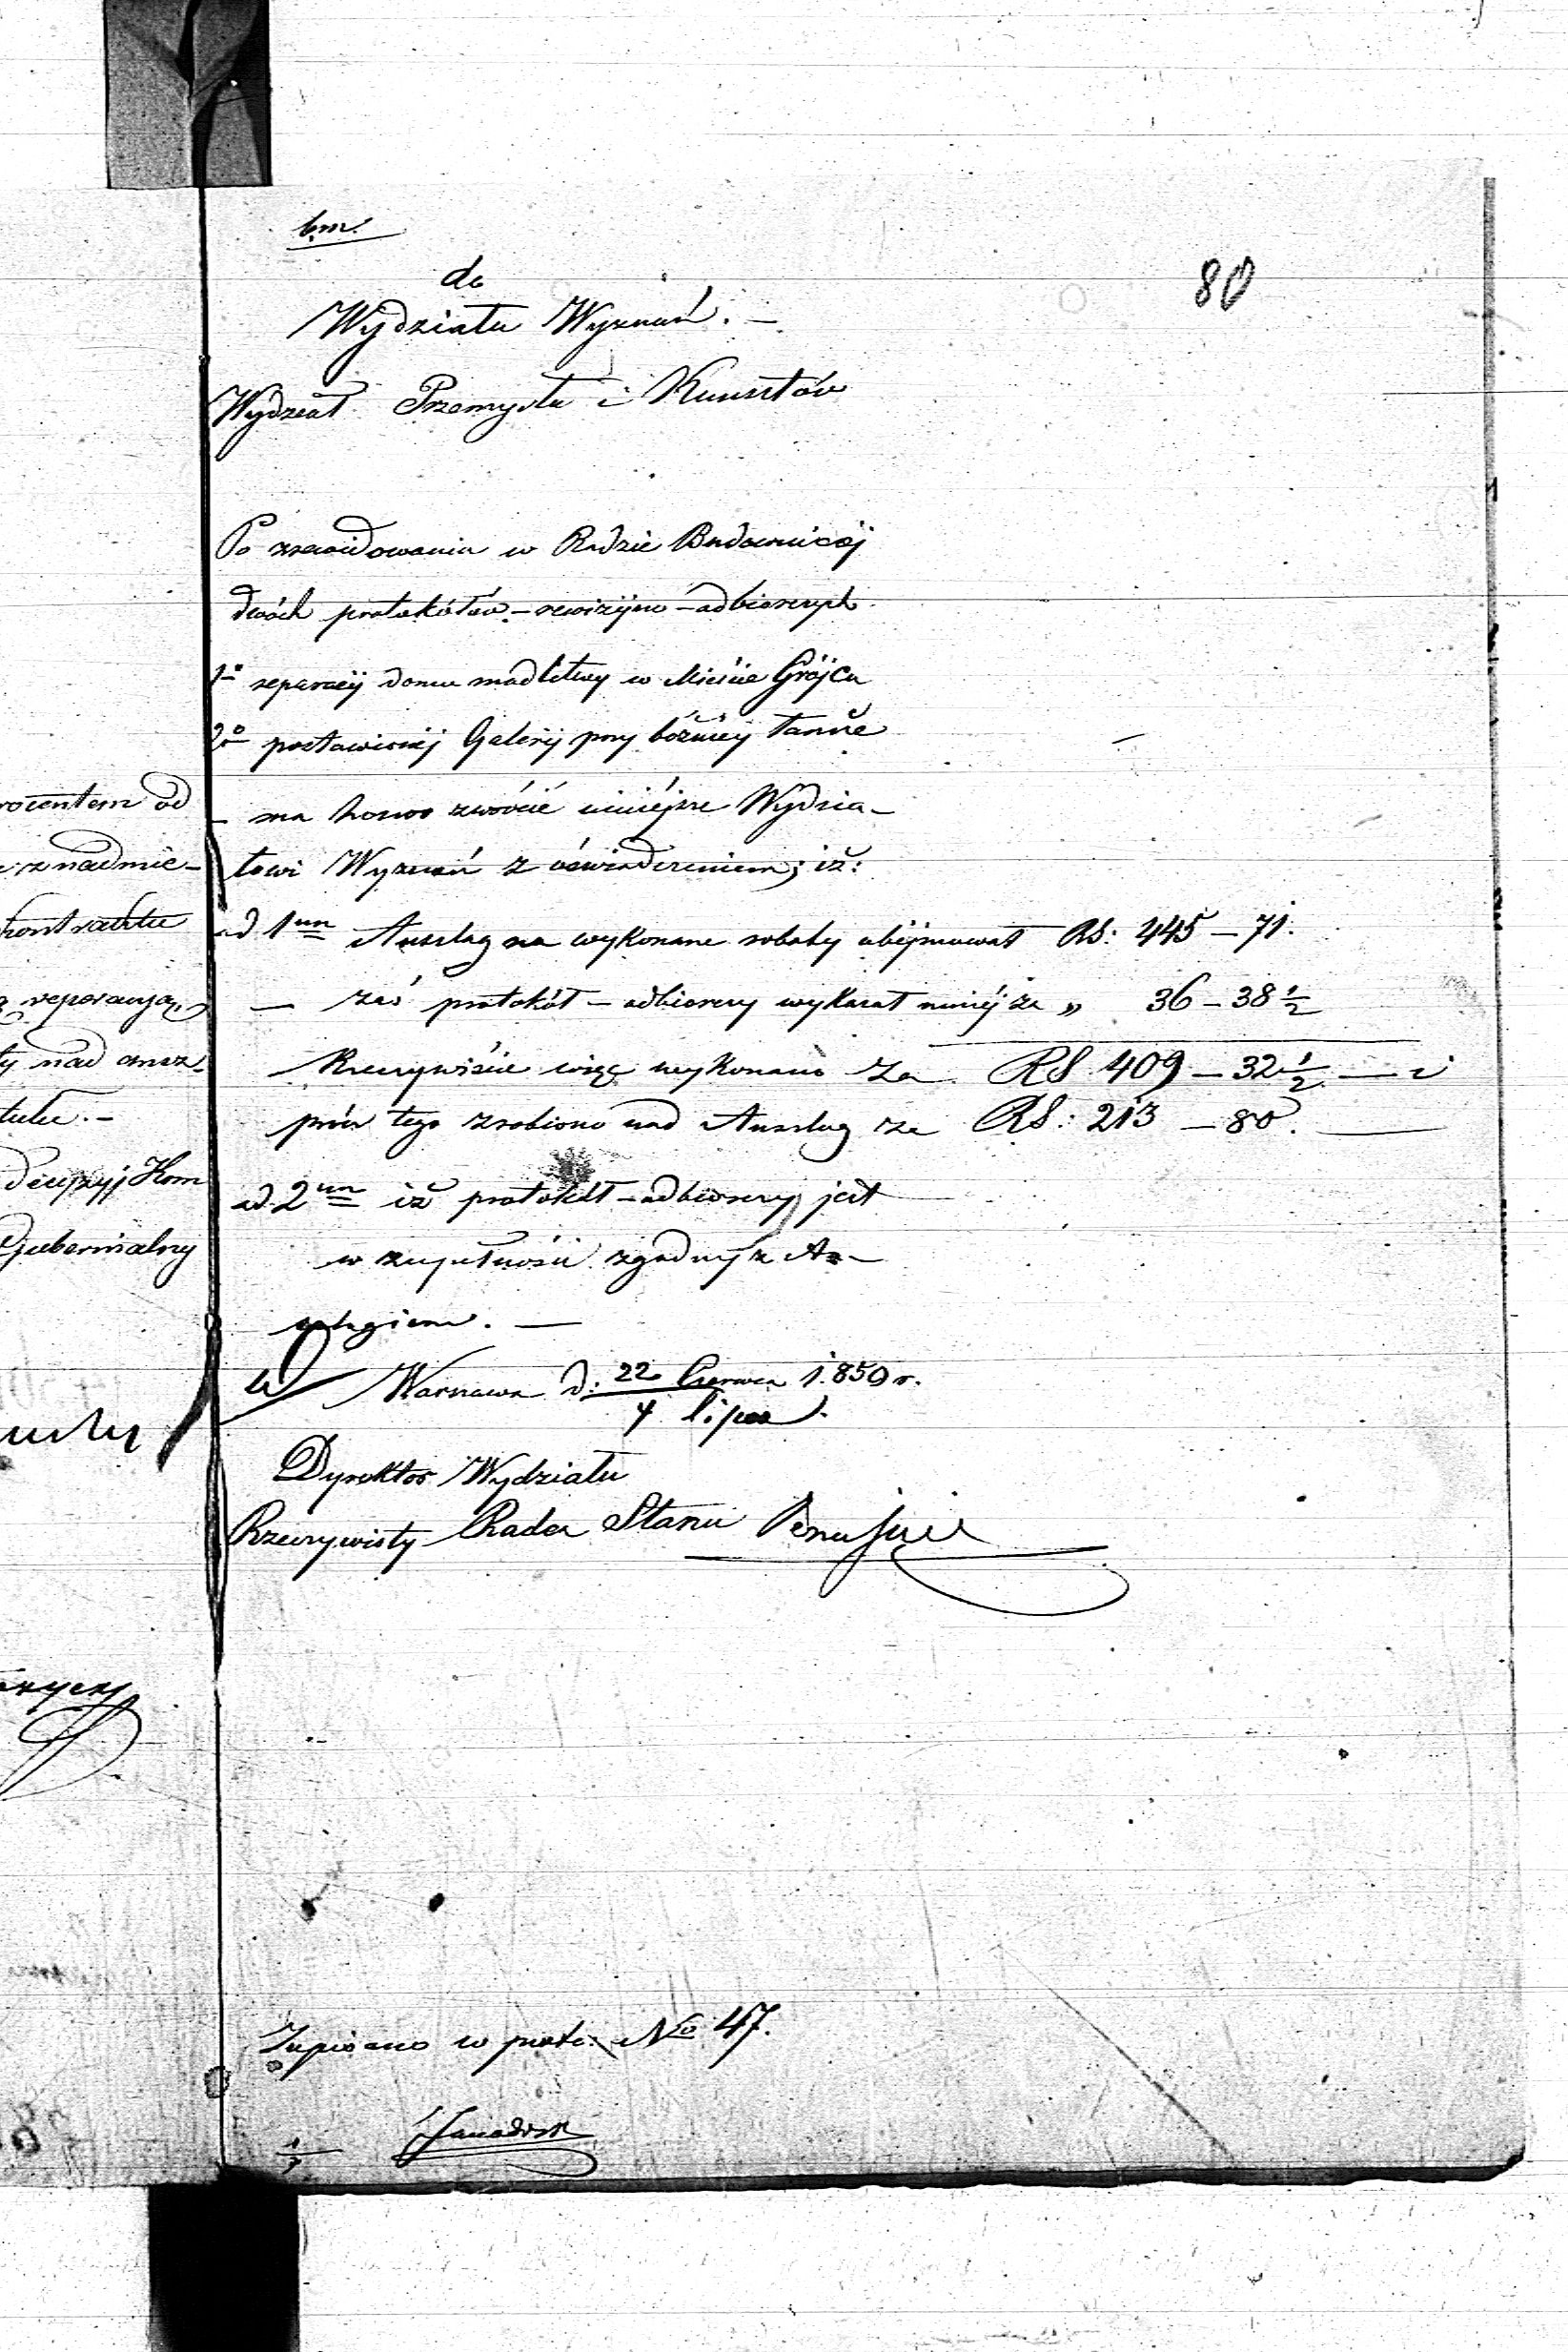 b.m.
80
do
Wydziału Wyznań. —
Wydział Przemysłu i Kunsztów
Po zrewidowaniu w Radzie Budowniczéj
dwóch protokółów — rewizyjno — odbiorczych
1o reparacyi domu modlitwy w Mieście Grójcu
2o postawionéj Galeryi przy bóżnicy tamże
— ma honor zwrócić niniéjsze Wydzia-
łowi Wyznań z oświadczeniem; iż:
ad 1um Anszlag na wykonane roboty obéjmował RS: 445 — 71.
— zaś protokół — odbiorczy wykazał mniéj za „ 36 — 38 1/2
Rzeczywiście więc wykonano za RS 409 — 32 1/2 — i
prócz tego zrobiono nad Anszlag za RS: 213 — 80. —
ad 2um iż protokół — odbiorczy jest
w zupełności zgodny z An-
szlagiem. —
w Warszawie d. 22 Czerwca / 4 lipca 1850 r.
Dyrektor Wydziału
Rzeczywisty Radca Stanu
Zapisano w prot. No 47.
rocentem od
z nadmie-
kontraktu
reparacyą
ty nad ansz-
tułu. —
decyzyj Kom
Gubernialny